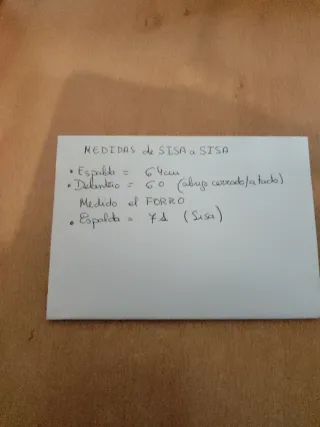 MEDIDAS de SISA a SISA
• Espalda = 64cm
• Delantero = 60 (abajo cerrado/atado)
Medido el FORRO
• Espalda = 71 (Sisa)